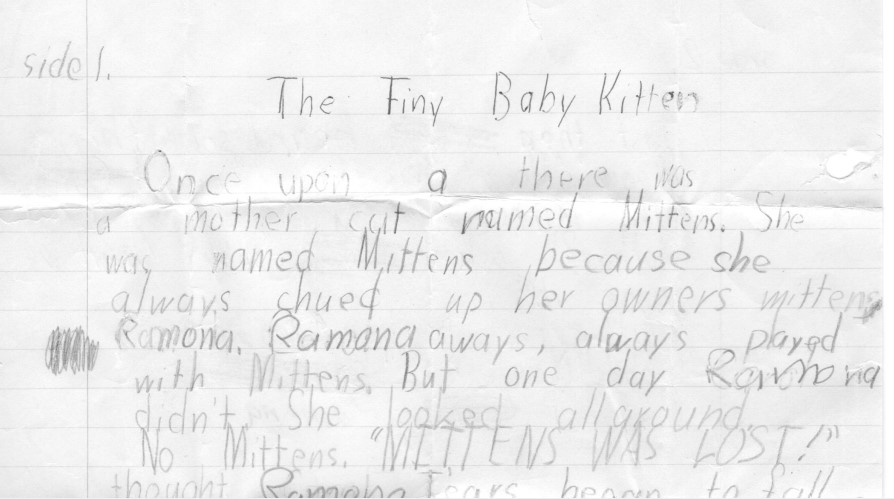 side 1.
The Tiny Baby Kitten
Once upon a there was
a mother cat named Mittens. She
was named Mittens because she
always chued up her owners mittens
Ramona. Ramona aways, always played
with Mittens. But one day Ramona
didn't. She looked all around.
No Mittens. "MITTENS WAS LOST!"
thought Ramona Tears began to fall